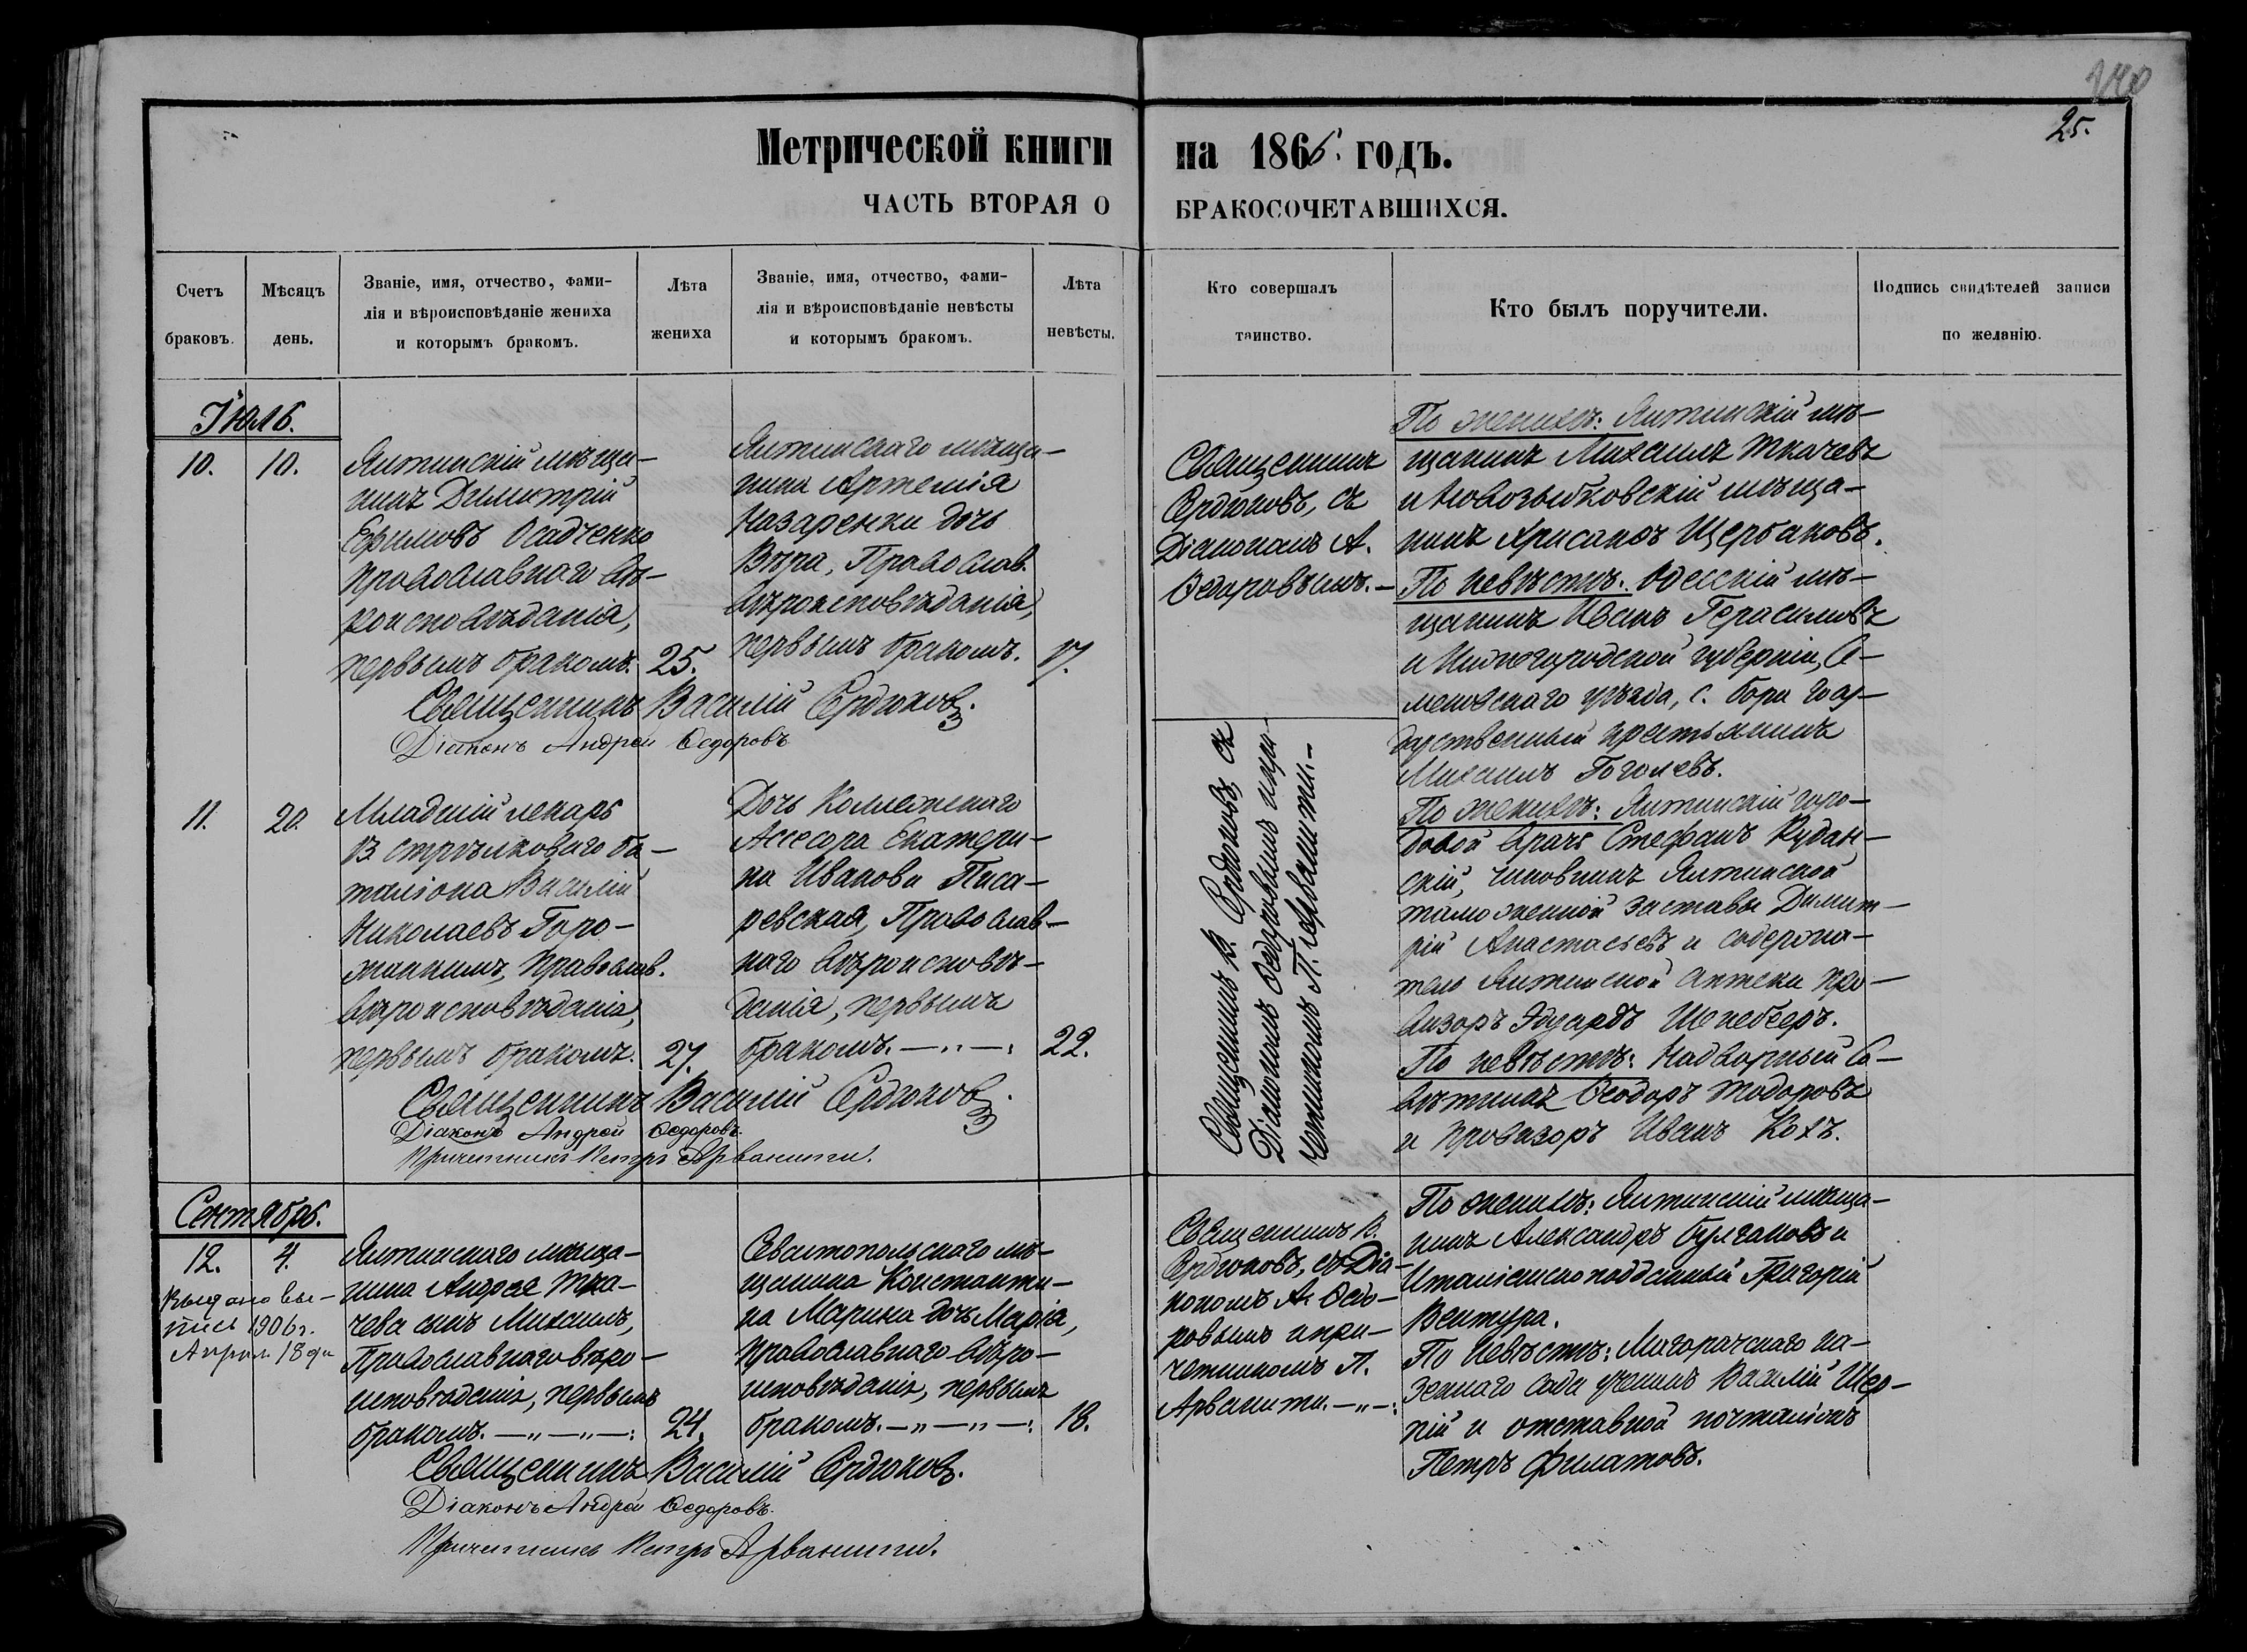 240
25.
Метрической книги на 1866. годъ.
ЧАСТЬ ВТОРАЯ О БРАКОСОЧЕТАВШИХСЯ.
Счетъ браковъ.
Мѣсяцъ день.
Званіе, имя, отчество, фами-
лія и вѣроисповѣданіе жениха
и которымъ бракомъ.
Лѣта жениха
Званіе, имя, отчество, фами-
лія и вѣроисповѣданіе невѣсты
и которымъ бракомъ.
Лѣта невѣсты.
Кто совершалъ
таинство.
Кто былъ поручители.
Подпись свидѣтелей записи
по желанію.
Іюль.
10.
10.
Ялтинскій мѣща-
нинъ Димитрій
Ефимовъ Осадченко
православнаго вѣ-
роисповѣданія,
первымъ бракомъ.
25.
Ялтинскаго мѣща-
нина Артемія
Назаренки дочь
Вѣра, Православ.
вѣроисповѣданія,
первымъ бракомъ.
17.
Священникъ
Сердюковъ, съ
Діакономъ А.
Ѳедоровымъ.—
По женихѣ: Ялтинскій мѣ-
щанинъ Михаилъ Ткачевъ
и Новозыбковскій мѣща-
нинъ Хрисанѳъ Щербаковъ.
По невѣстѣ: Одесскій мѣ-
щанинъ Иванъ Герасимовъ
и Нижегородской губерніи, Се-
меновскаго уѣзда, с. Бора госу-
дарственный крестьянинъ
Михаилъ Гоголевъ.
Священникъ Василій Сердюковъ.
Діаконъ Андрей Ѳедоровъ
11.
20.
Младшій лекарь
13 стрѣлковаго ба-
таліона Василій
Николаевъ Горо-
жанкинъ, православ.
вѣроисповѣданія,
первымъ бракомъ.
27.
Дочь Коллежскаго
Ассесора Екатери-
на Иванова Писа-
ревская, Православ-
наго вѣроисповѣ-
данія, первымъ
бракомъ.—„—:
22.
Священникъ В. Сердюковъ, съ
Діакономъ Ѳедоровымъ и при-
четникомъ П. Арванити.—
По женихѣ: Ялтинскій горо-
довой врачъ Стефанъ Рудан-
скій, чиновникъ Ялтинской
таможенной заставы Димит-
рій Анастасьевъ и содержа-
тель Ялтинской аптеки про-
визоръ Эдуардъ
По невѣстѣ: Надворный Со-
вѣтникъ Ѳеодоръ Тодоровъ
и провизоръ Иванъ Кохъ.
Священникъ Василій Сердюковъ.
Діаконъ Андрей Ѳедоровъ.
Причетникъ Петръ Арванити.
Сентябрь.
12.
4.
Выдано вы-
пись 1906 г.
Апрѣля 18 дн
Ялтинскаго мѣща-
нина Андрея Тка-
чева сынъ Михаилъ,
Православнаго вѣро-
исповѣданія, первымъ
бракомъ.—„—„—:
24.
Севастопольскаго мѣ-
щанина Константи-
на Марина дочь Марія,
православнаго вѣро-
исповѣданія, первымъ
бракомъ.—„—„—:
18.
Священникъ В.
Сердюковъ, съ Діа-
кономъ А. Ѳедо-
ровымъ и при-
четникомъ П.
Арванити.—„—:
По женихѣ: Ялтинскій мѣща-
нинъ Александръ Булгаковъ и
Италіанскоподданный Григорій
Вентура.
По Невѣстѣ: Магарачскаго ка-
зеннаго сада ученикъ Василій
и отставной почталіонъ
Петръ Филатовъ.
Священникъ Василій Сердюковъ.
Діаконъ Андрей Ѳедоровъ.
Причетникъ Петръ Арванити.